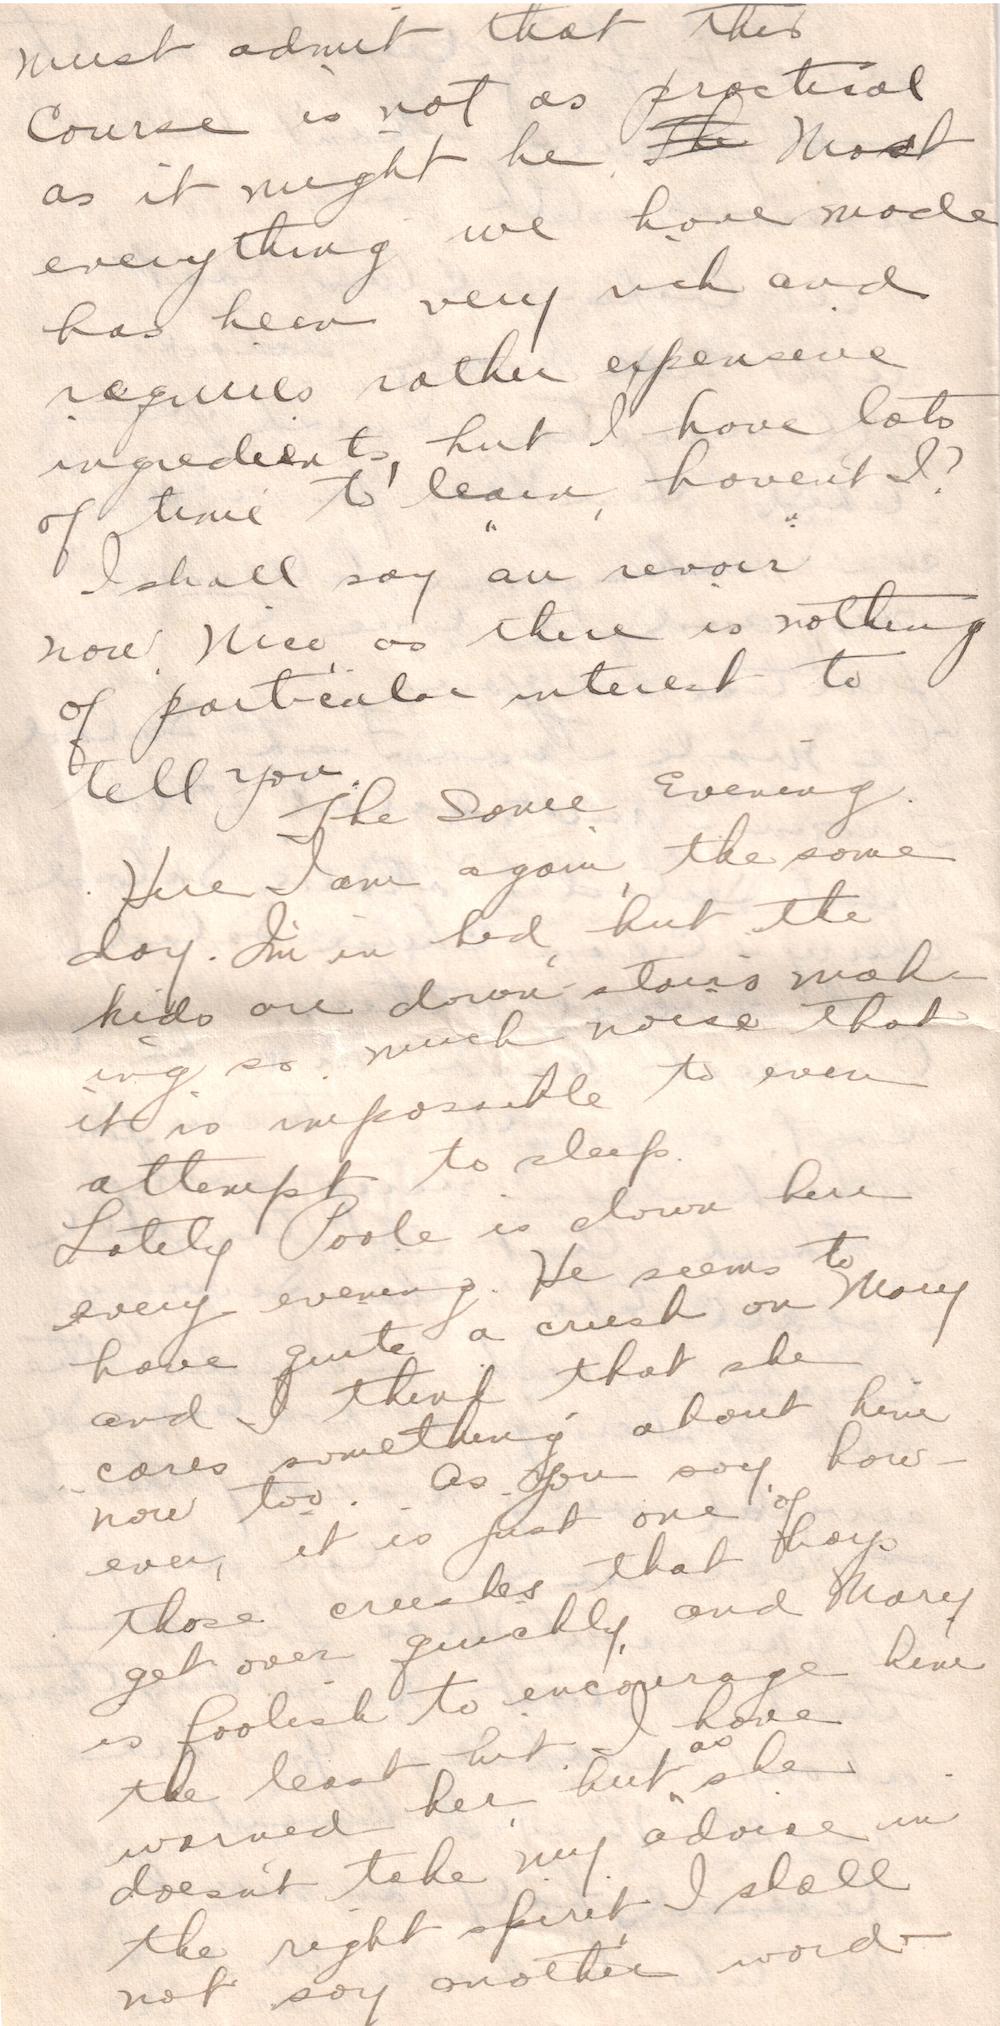 must admit that this
Course is not as practical
as it might be. The Most
everything we have made
has been very rich and
requires rather expensive
ingredients, but I have lots
of time to learn, haven't I?
I shall say "au revoir"
now, Nice, as there is nothing
of particular interest to
tell you.
The Same Evening.
Here I am again, the same
day. I'm in bed, but the
kids are down stairs mak-
ing so much noise that
it is impossible to even
attempt to sleep.
Lately Poole is down here
every evening. He seems to
have quite a crush on Mary
and I think that she
cares something about him
now too. As you say, how-
ever, it is just one of
those crushes that boys
get over quickly, and Mary
is foolish to encourage him
the least bit. I have
warned her, but as she
doesn't take my advise in
the right spirit, I shall
not say another word